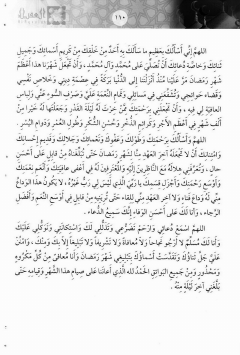 ١١٠
اللهمّ إني أسألك بعظيم ما سألك به أحد من خلقك من كريم أسمائك وجميل
ثنائك وخاصة دعائك أن تصلي على محمد وآل محمد، وأن تجعل شهرنا هذا أعظم
شهر رمضان مرّ علينا منذ أنزلتنا إلى الدنيا بركة في عصمة ديني وخلاص نفسي
وقضاء حوائجي وتشفعني في مسائلي وتمام النعمة عليّ وصرف السوء عني ولباس
العافية لي فيه، وأن تجعلني برحمتك ممن خرت له ليلة القدر وجعلتها له خيراً من
ألف شهر في أعظم الأجر وكرائم الذخر وحسن الشكر وطول العمر ودوام اليسر.
اللهم وأسألك برحمتك وطولك وعفوك ونعمائك وجلالك وقديم إحسانك
وامتنانك أن لا تجعله آخر العهد منّا لشهر رمضان حتى تبلغناه من قابل على أحسن
حال، وتعرفني هلاله مع الناظرين إليه والمعترفين له في أعفى عافيتك وأنعم نعمتك
وأوسع رحمتك وأجزل قسمك يا ربي الذي ليس لي رب غيره، لا يكون هذا الوداع
مني له وداع فناء ولا آخر العهد مني للقاء حتى ترينيه من قابل في أوسع النعم وأفضل
الرجاء، وأنا لك على أحسن الوفاء إنك سميع الدعاء.
اللهم اسمع دعائي وارحم تضرعي وتذللي لك واستكانتي وتوكلي عليك
وأنا لك مسلّم لا أرجو نجاحاً ولا معافاة ولا تشريفاً ولا تبليغاً إلا بك ومنك، وامنن
عليّ جلّ ثناؤك وتقدست أسماؤك بتبليغي شهر رمضان وأنا معافى من كل مكروه
ومحذور ومن جميع البوائق الحمد لله الذي أعاننا على صيام هذا الشهر وقيامه حتى
بلغني آخر ليلة منه.